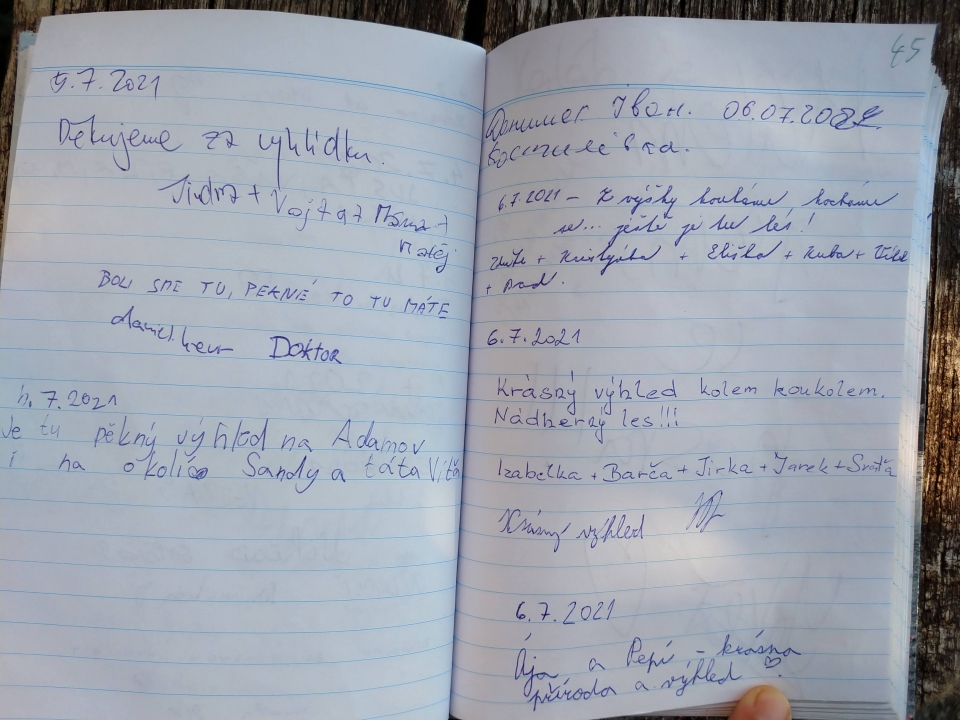 5.7.2021
Děkujeme za vyhlídku.
Jindra + Vojta +
Matěj
BOLI SME TU, PEKNÉ TO TU MÁTE
Doktor
7.2021
Je tu pěkný výhled na Adamov
i na okolí Sandy a táta Víťa
45
Иван. 06.07.2021.
6.7.2021 – Z výšky koukáme kocháme
se... ještě je tu les!
+ Kristýnka + Eliška + Kuba +
+
6.7.2021
Krásný výhled kolem koukolem.
Nádherný les!!!
Izabelka + Barča + Jirka + Jarek + Sváťa
Krásný výhled
6.7.2021
Ája a Pepí – krásna
příroda a výhled